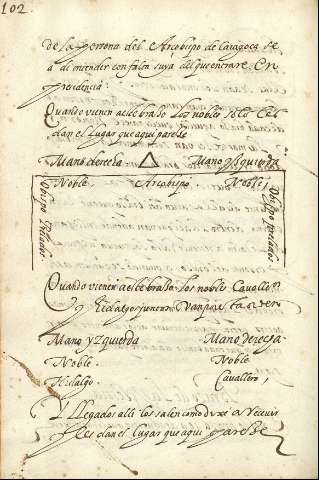 102
de la persona del Arcobispo de Caragoca se
a de entender con falta suya del que entrare En
Presidencia
Quando vienen a el brasso los nobles solos Les
dan el Lugar que aqui parece
Mano derecha Mano Ysquierda
Noble. Arcobispo. Noble
Obispo Prelados
Obispo prelados
Quando vienen a el brasso los nobles Cavallers
Y Hidalgos juntos Van por
Mano Yzquierda Mano Derecha
Noble. Noble
Hidalgo Cavallero,
Y llegados alli los salen como dixe a Recevir
Les dan el Lugar que aqui parece